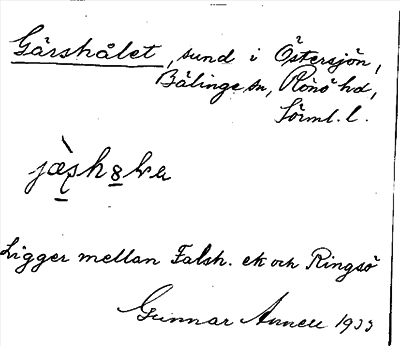 Gärshålet, sund i Östersjön,
Bälinge sn, Rönö hd,
Örml. l.
Ligger mellan Falsh. ek och Ringsö
Gunnar Annell 1933